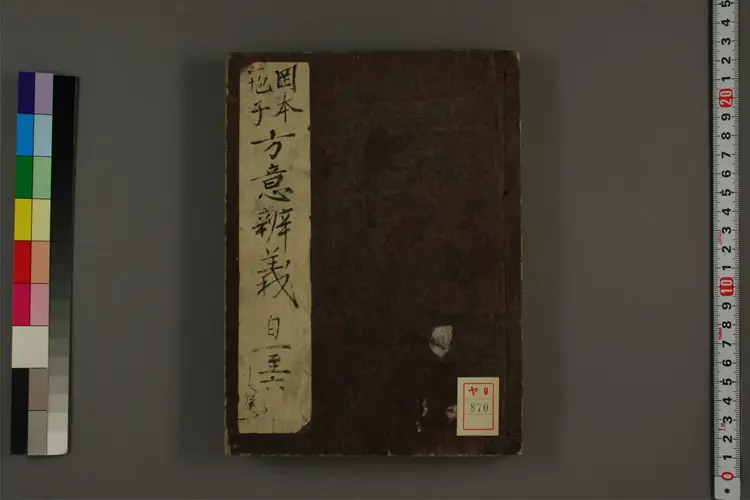 岡本
苑子
方意辨義
自一至六
ヤ9
870
0 1 2 3 4 5 6 7 8 9 10 1 2 3 4 5 6 7 8 9 20 1 2 3 4 5